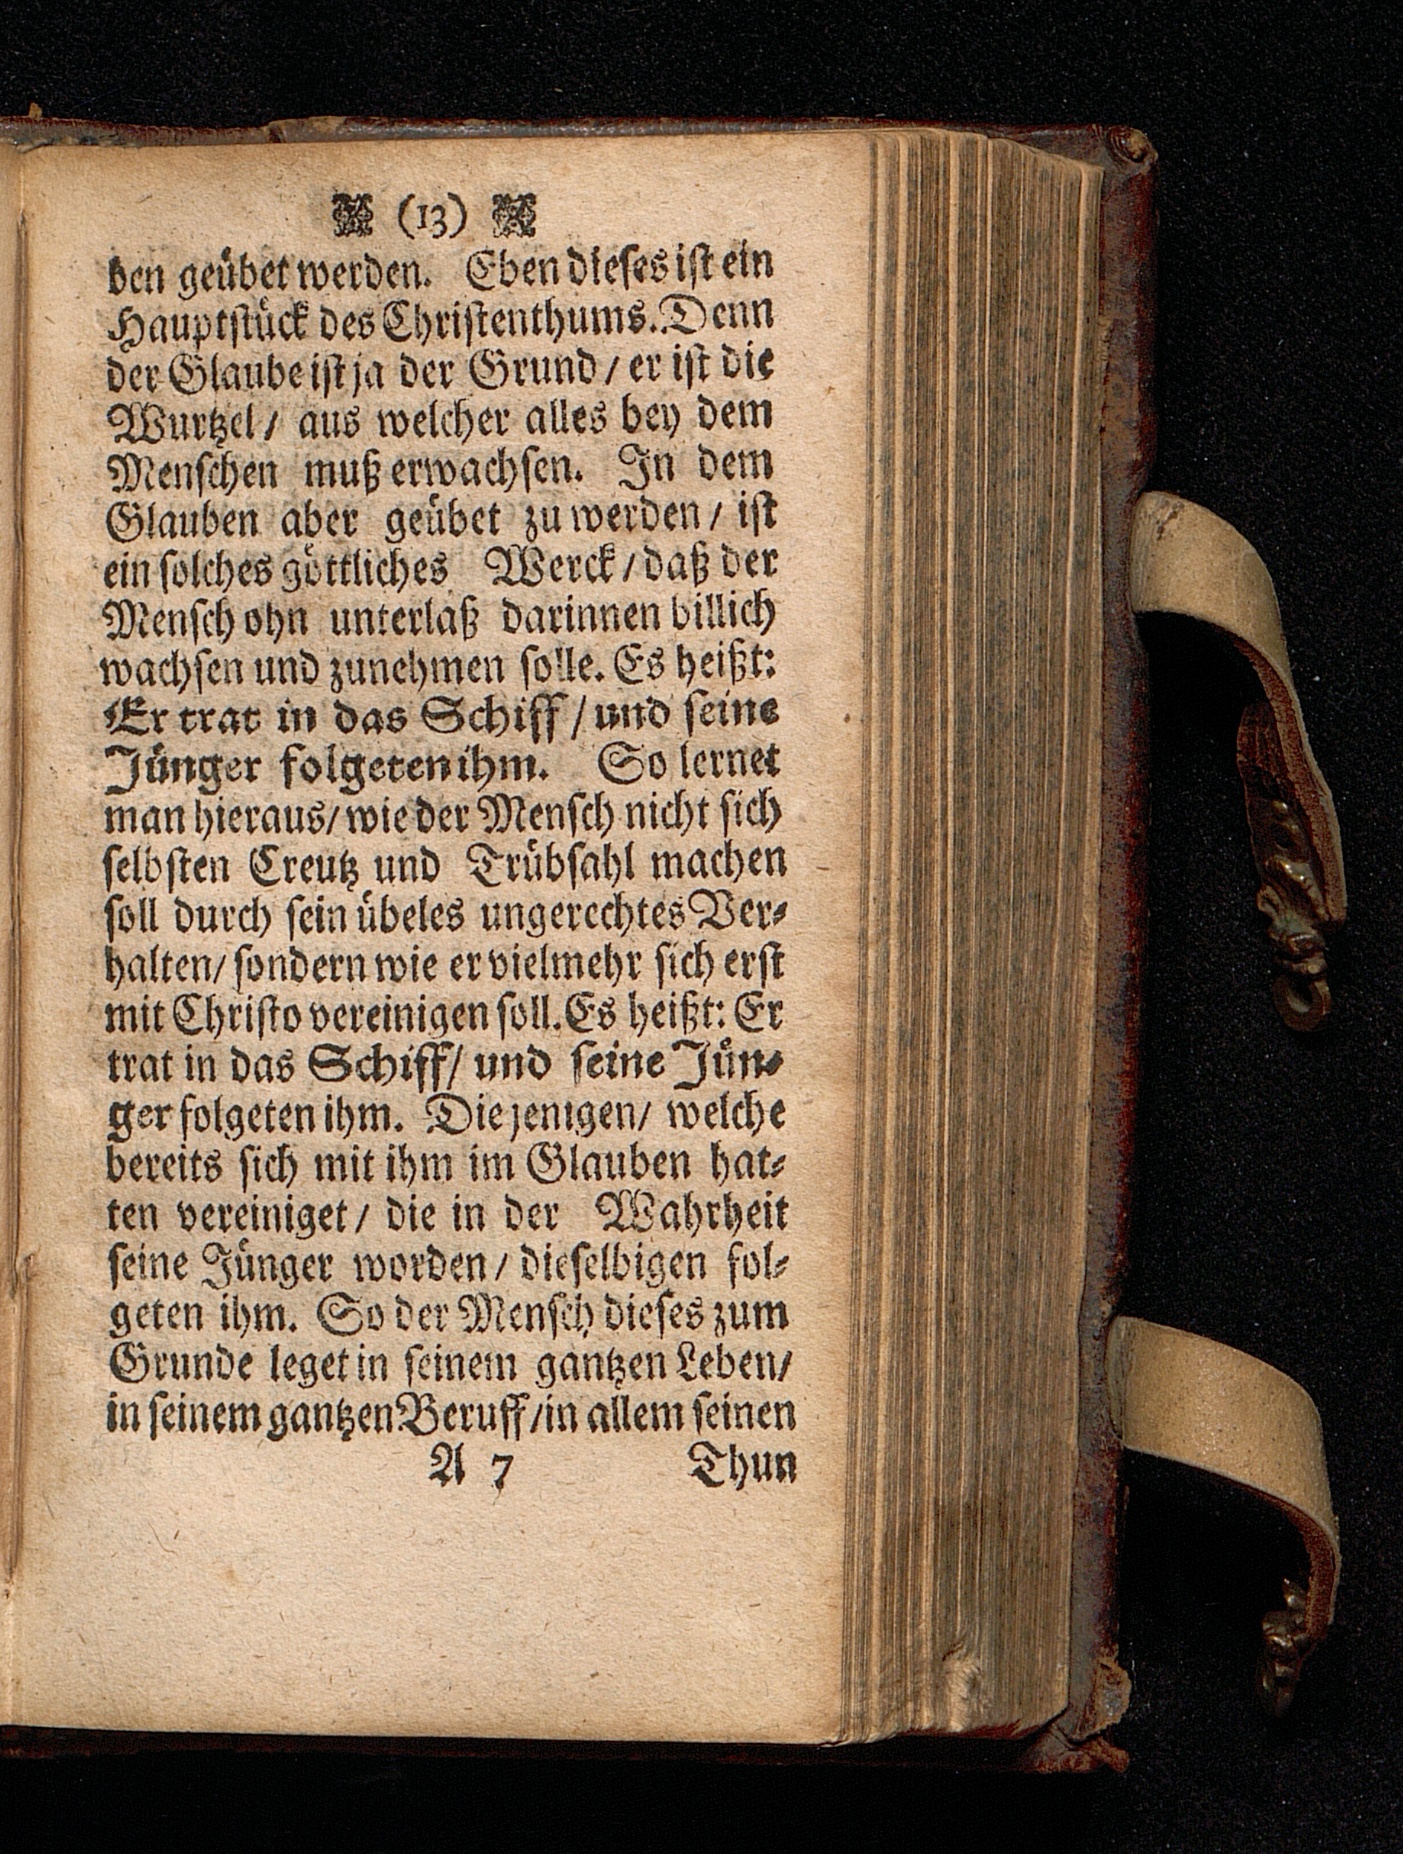 (13)
ben geübet werden. Eben dieses ist ein
Hauptstück des Christenthums. Denn
der Glaube ist ja der Grund / er ist die
Wurtzel / aus welcher alles bey dem
Menschen muß erwachsen. In dem
Glauben aber geübet zu werden / ist
ein solches göttliches Werck / daß der
Mensch ohn unterlaß darinnen billich
wachsen und zunehmen solle. Es heißt:
Er trat in das Schiff / und seine
Jünger folgeten ihm. So lernet
man hieraus / wie der Mensch nicht sich
selbsten Creutz und Trübsahl machen
soll durch sein übeles ungerechtes Ver-
halten / sondern wie er vielmehr sich erst
mit Christo vereinigen soll. Es heißt: Er
trat in das Schiff / und seine Jün-
ger folgeten ihm. Die jenigen / welche
bereits sich mit ihm im Glauben hat-
ten vereiniget / die in der Wahrheit
seine Jünger worden / dieselbigen fol-
geten ihm. So der Mensch dieses zum
Grunde leget in seinem gantzen Leben /
in seinem gantzen Beruff / in allem seinen
A 7 Thun